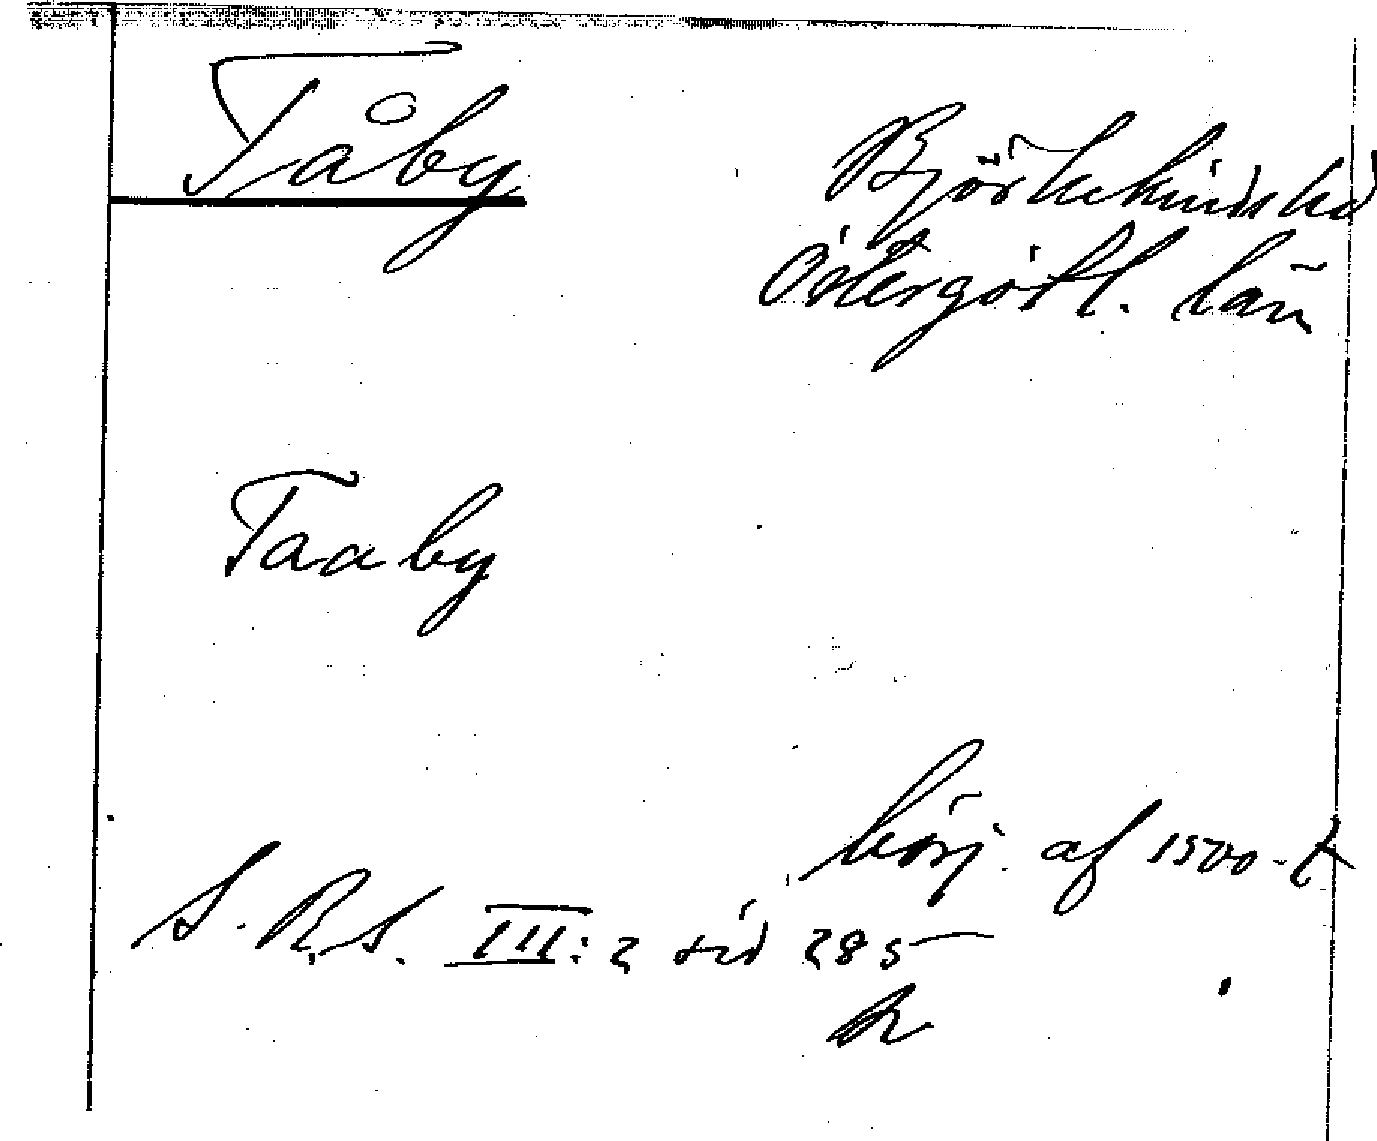 Tåby
Björkekinds hd
Östergötl. län
Taaby
börj. af 1500-t
S.R.S. III:2 sid 285